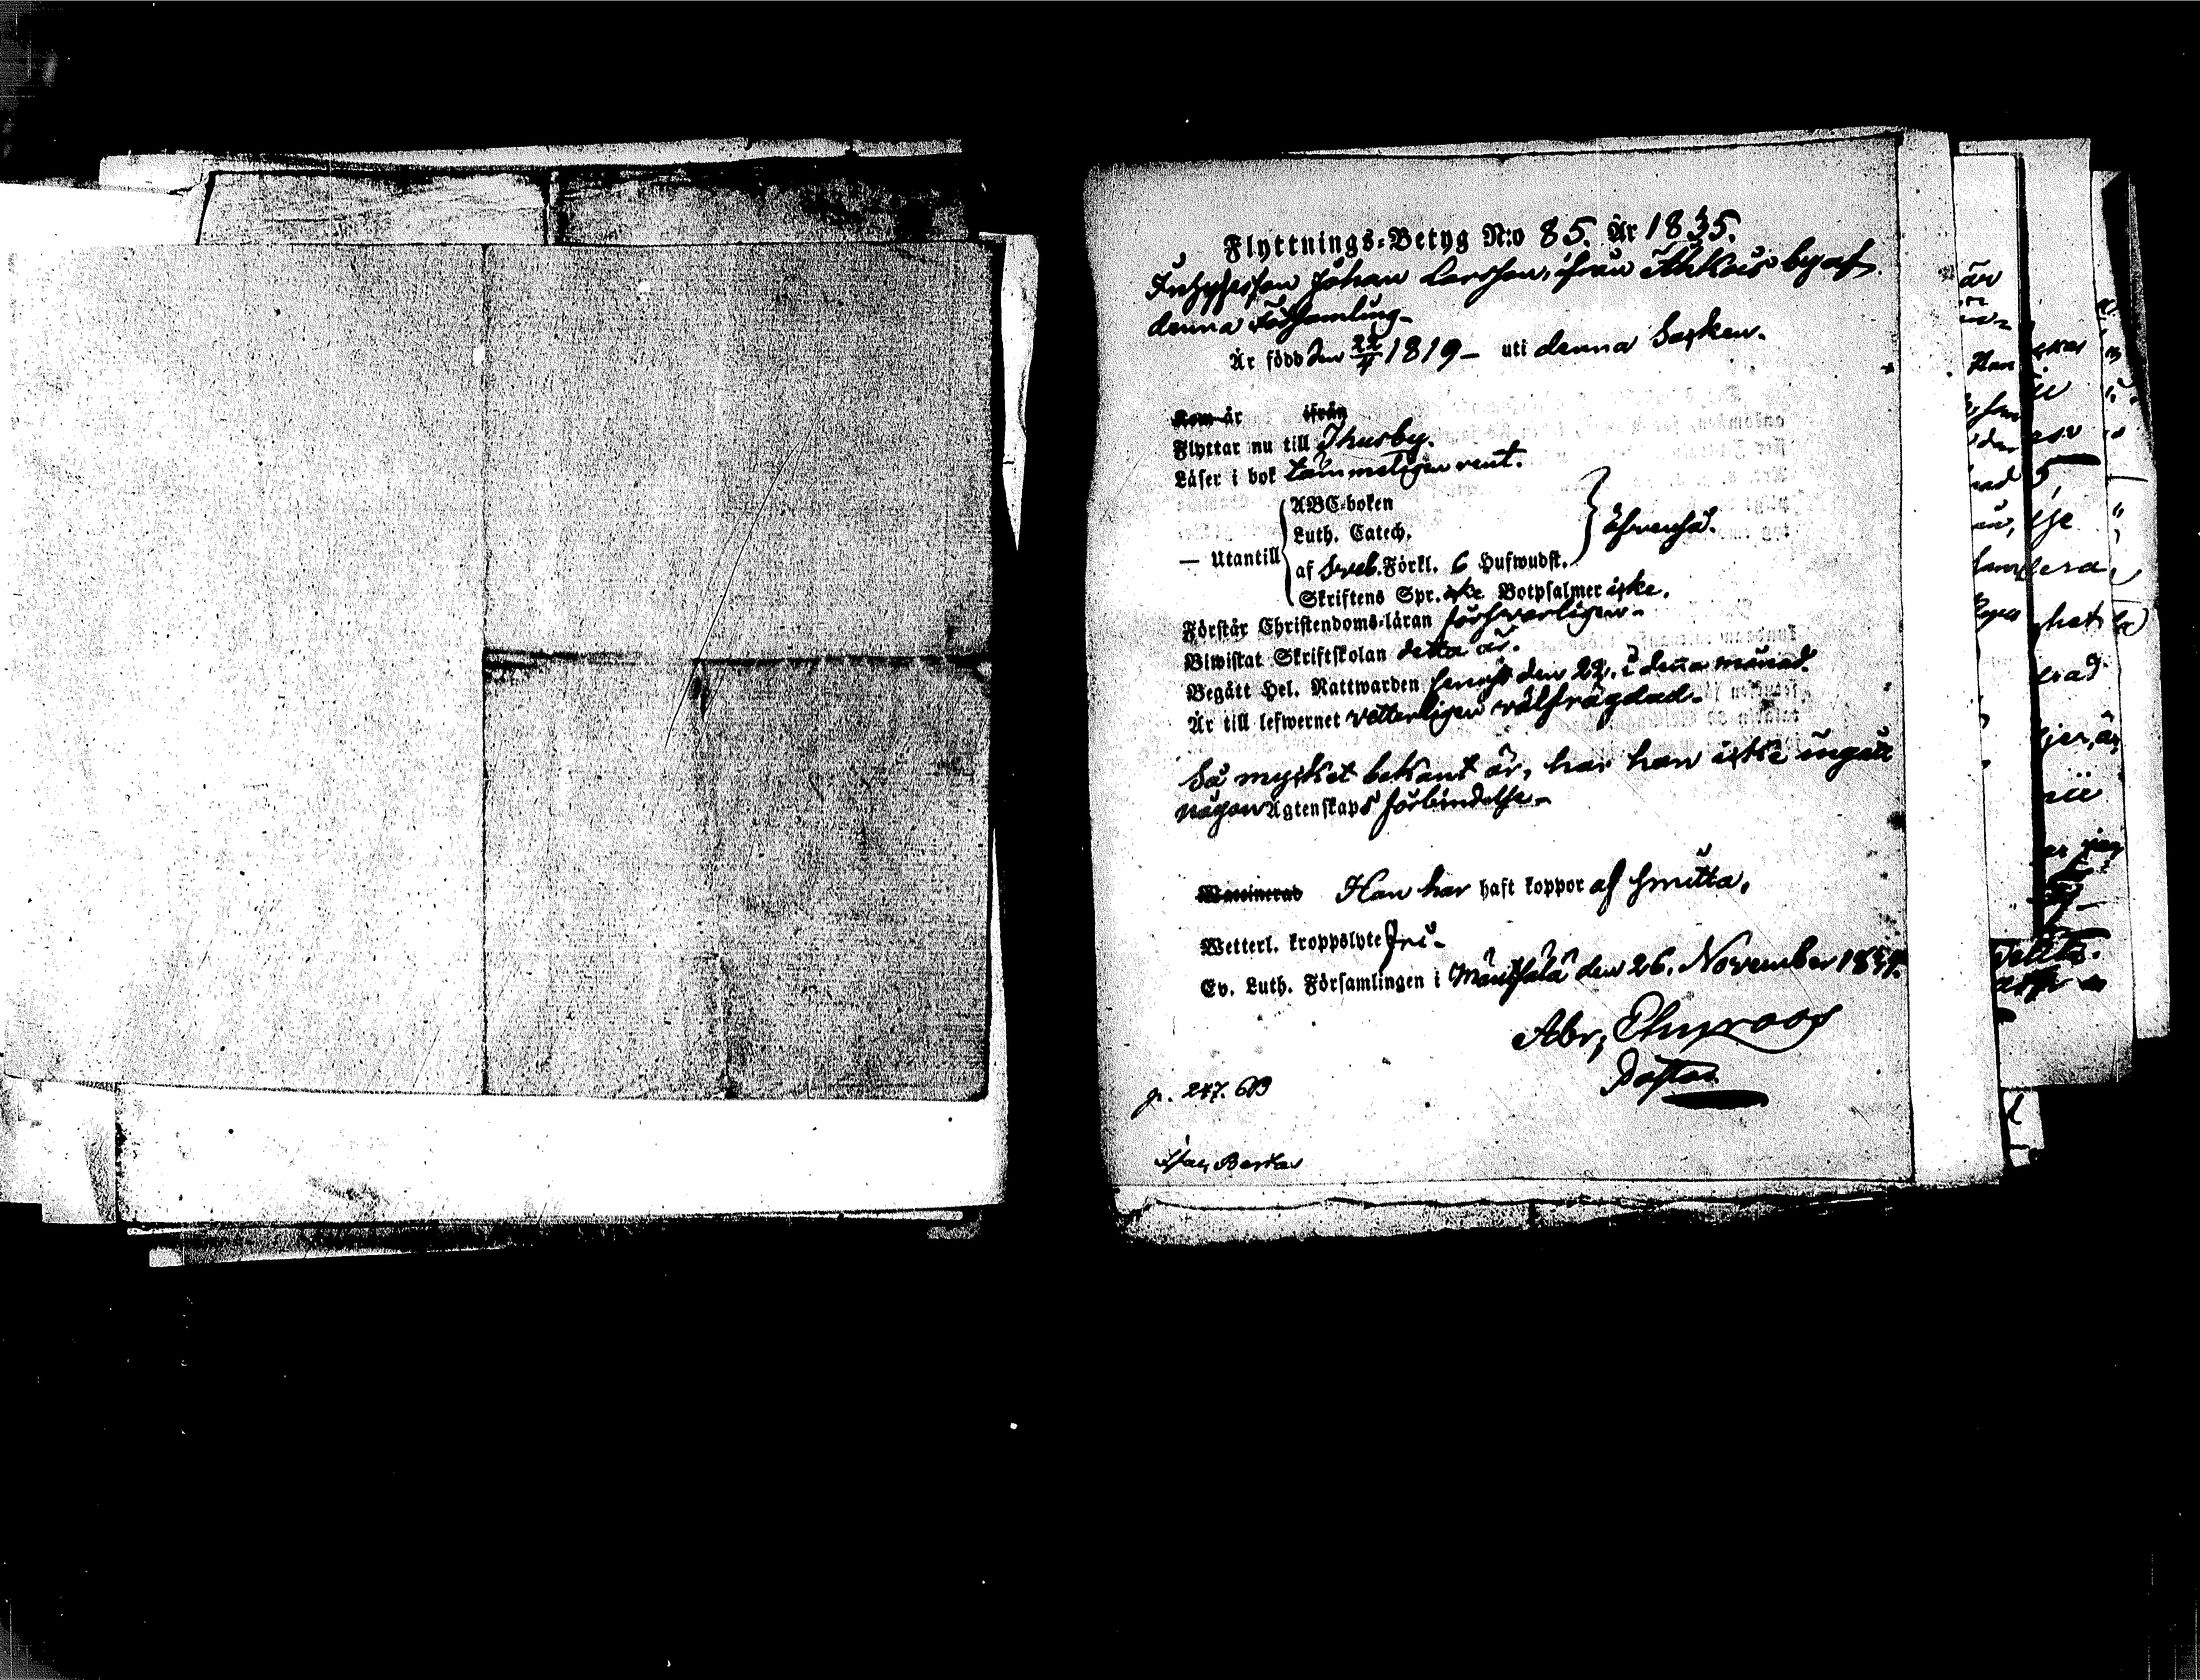 Flyttnings-Betyg N:o 85. År 1835.
Johan Larsson, ifrån by af
denna Församling-
Är född den 22/4 1819- uti denna Socken.
Kom år ifrån
Flyttar nu till Thusby.
Läser i bok tämmeligen rent.
ABC-boken
Luth. Catech.
— Utantill af Sveb. Förkl. 6 Hufwudst. äfvenså.
Skriftens Spr. icke Botpsalmer icke.
Förstår Christendoms-läran försvarligen-
Biwistat Skriftskolan detta år.
Begått Hrl. Nattwarden senast den 22. i denna månad.
Är till lefwernet vetterligen välfrägdad.
Så mycket bekant är, har han icke ingått
någon Ägtenskaps förbindelse-
Waccinerad Han har haft koppor af smitta.
Wetterl. kroppslyte fri-
Ev. Luth. Församlingen i Mäntsälä den 26. November 1835.
Abr. Elmgroos
Pastor
p. 247.